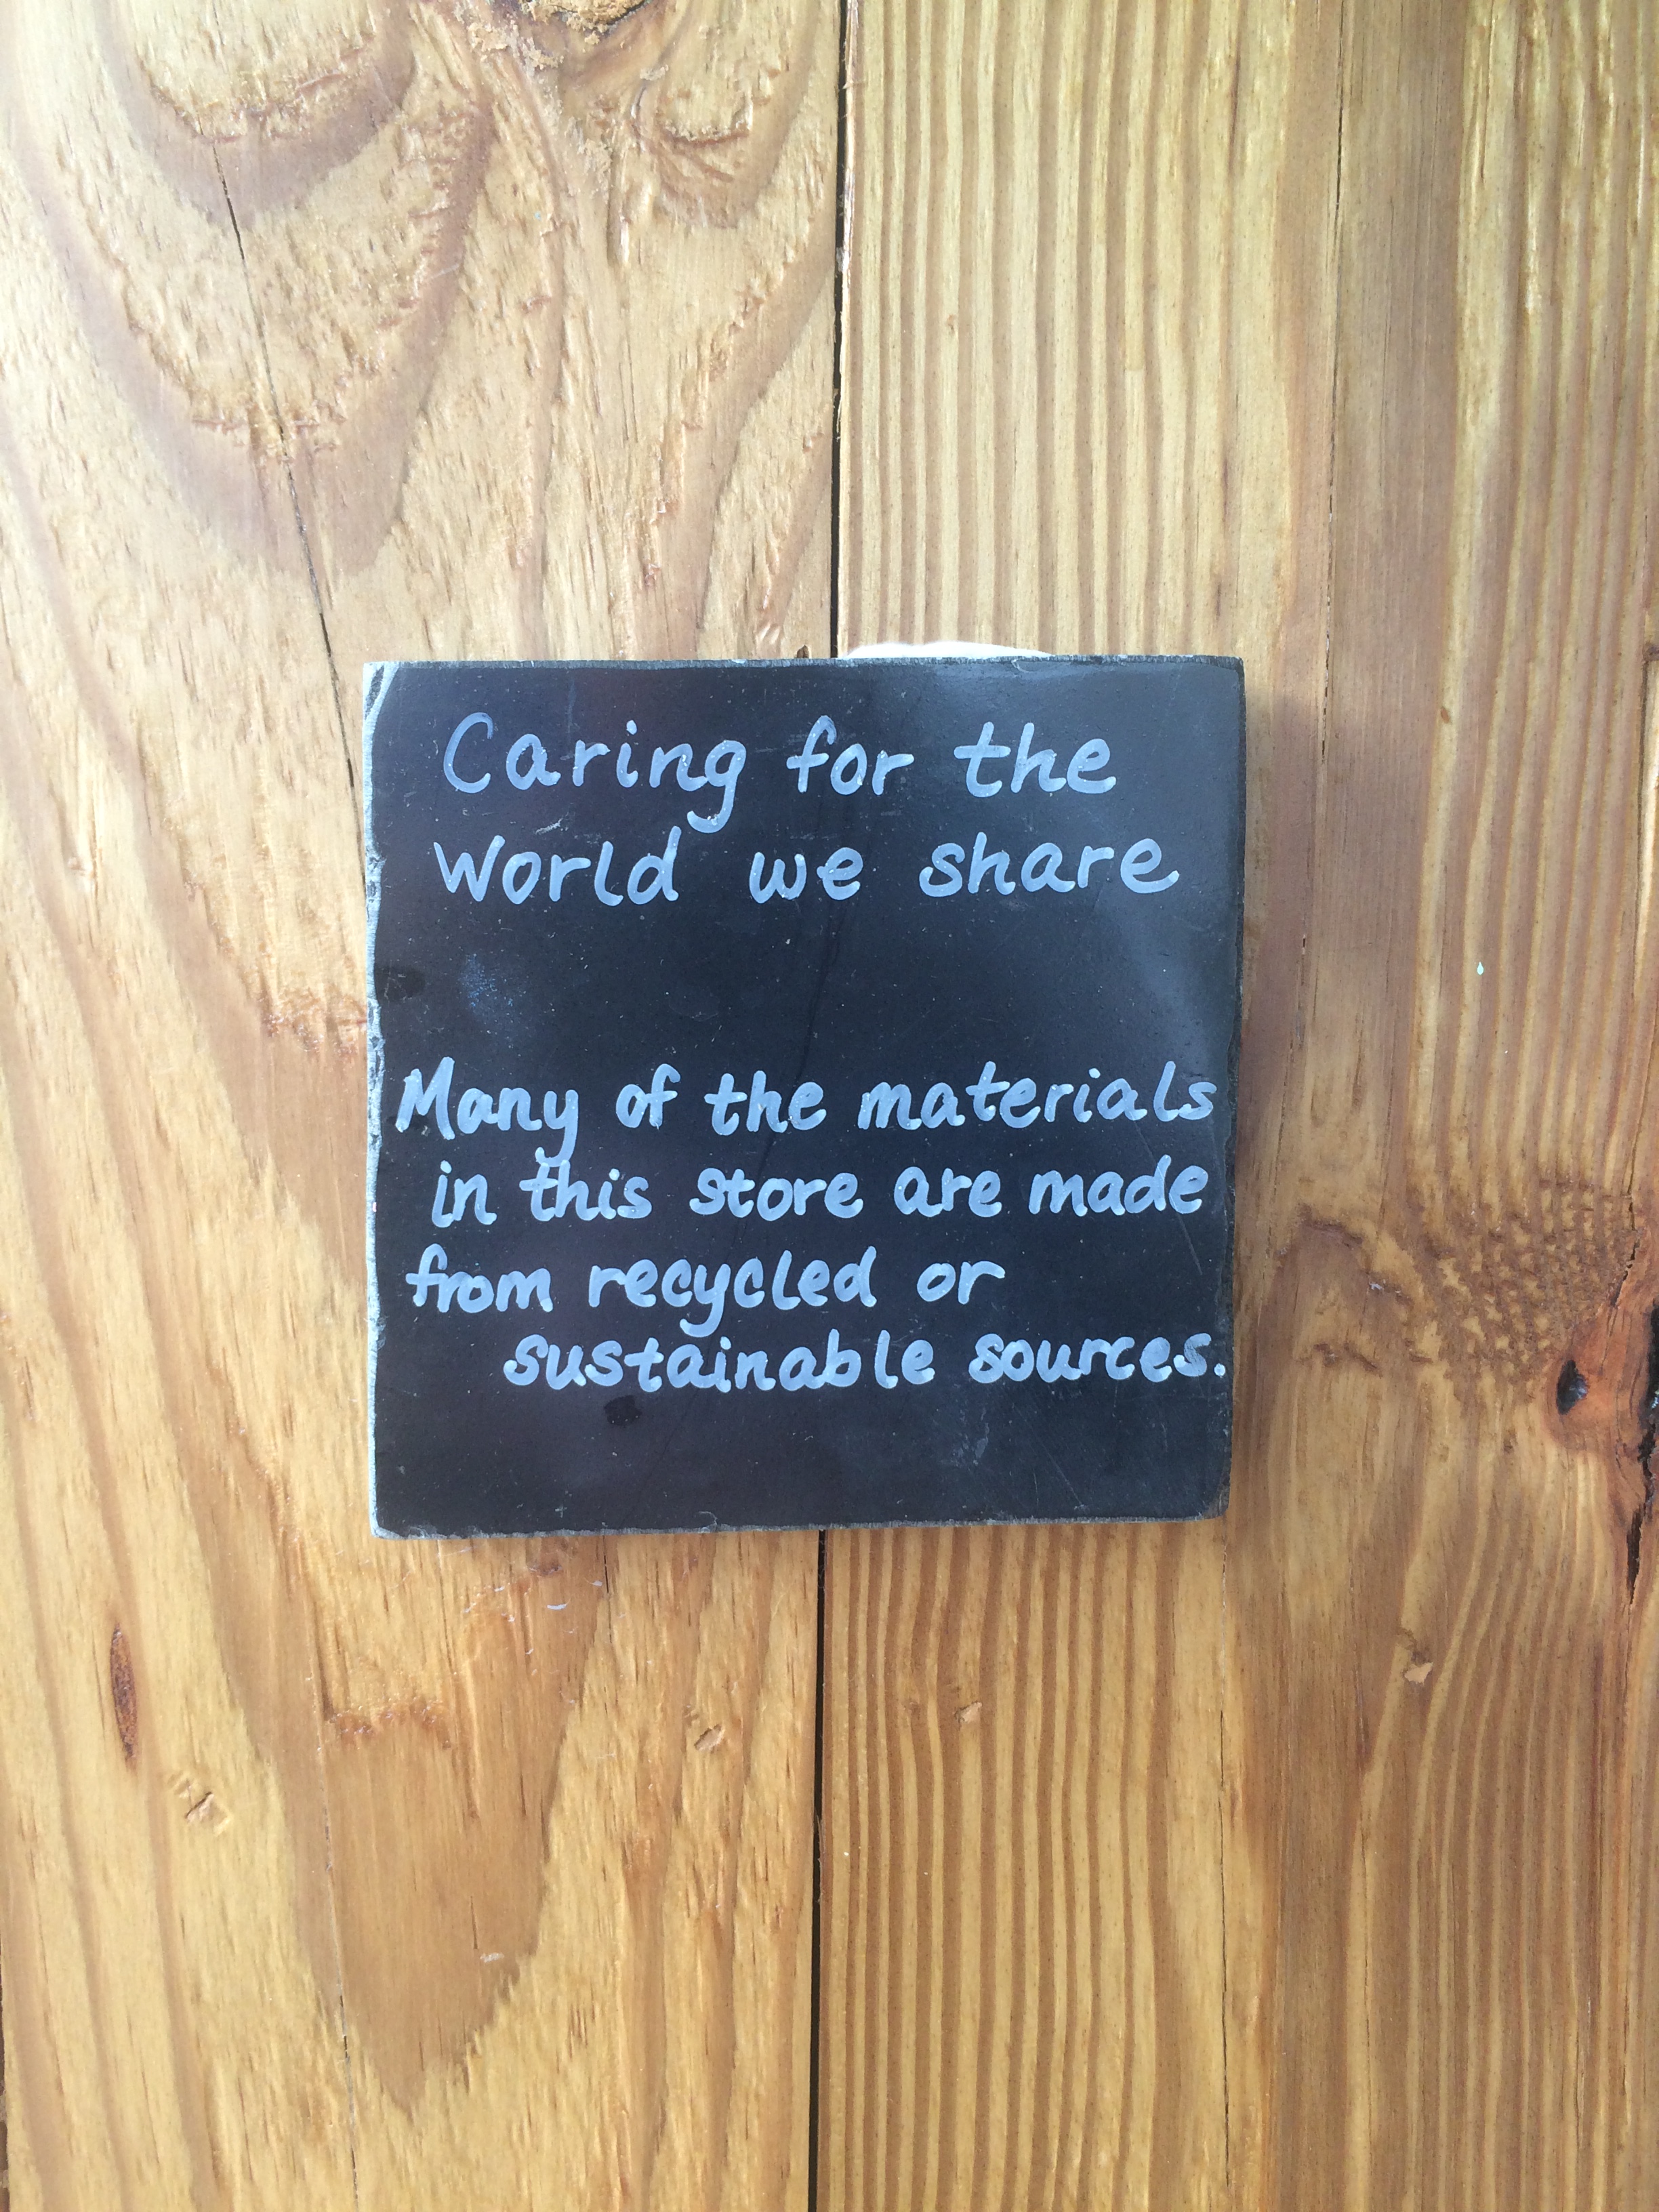 Caring for the
World we share
Many of the materials
in this store are made
from recycled or
sustainable sources.